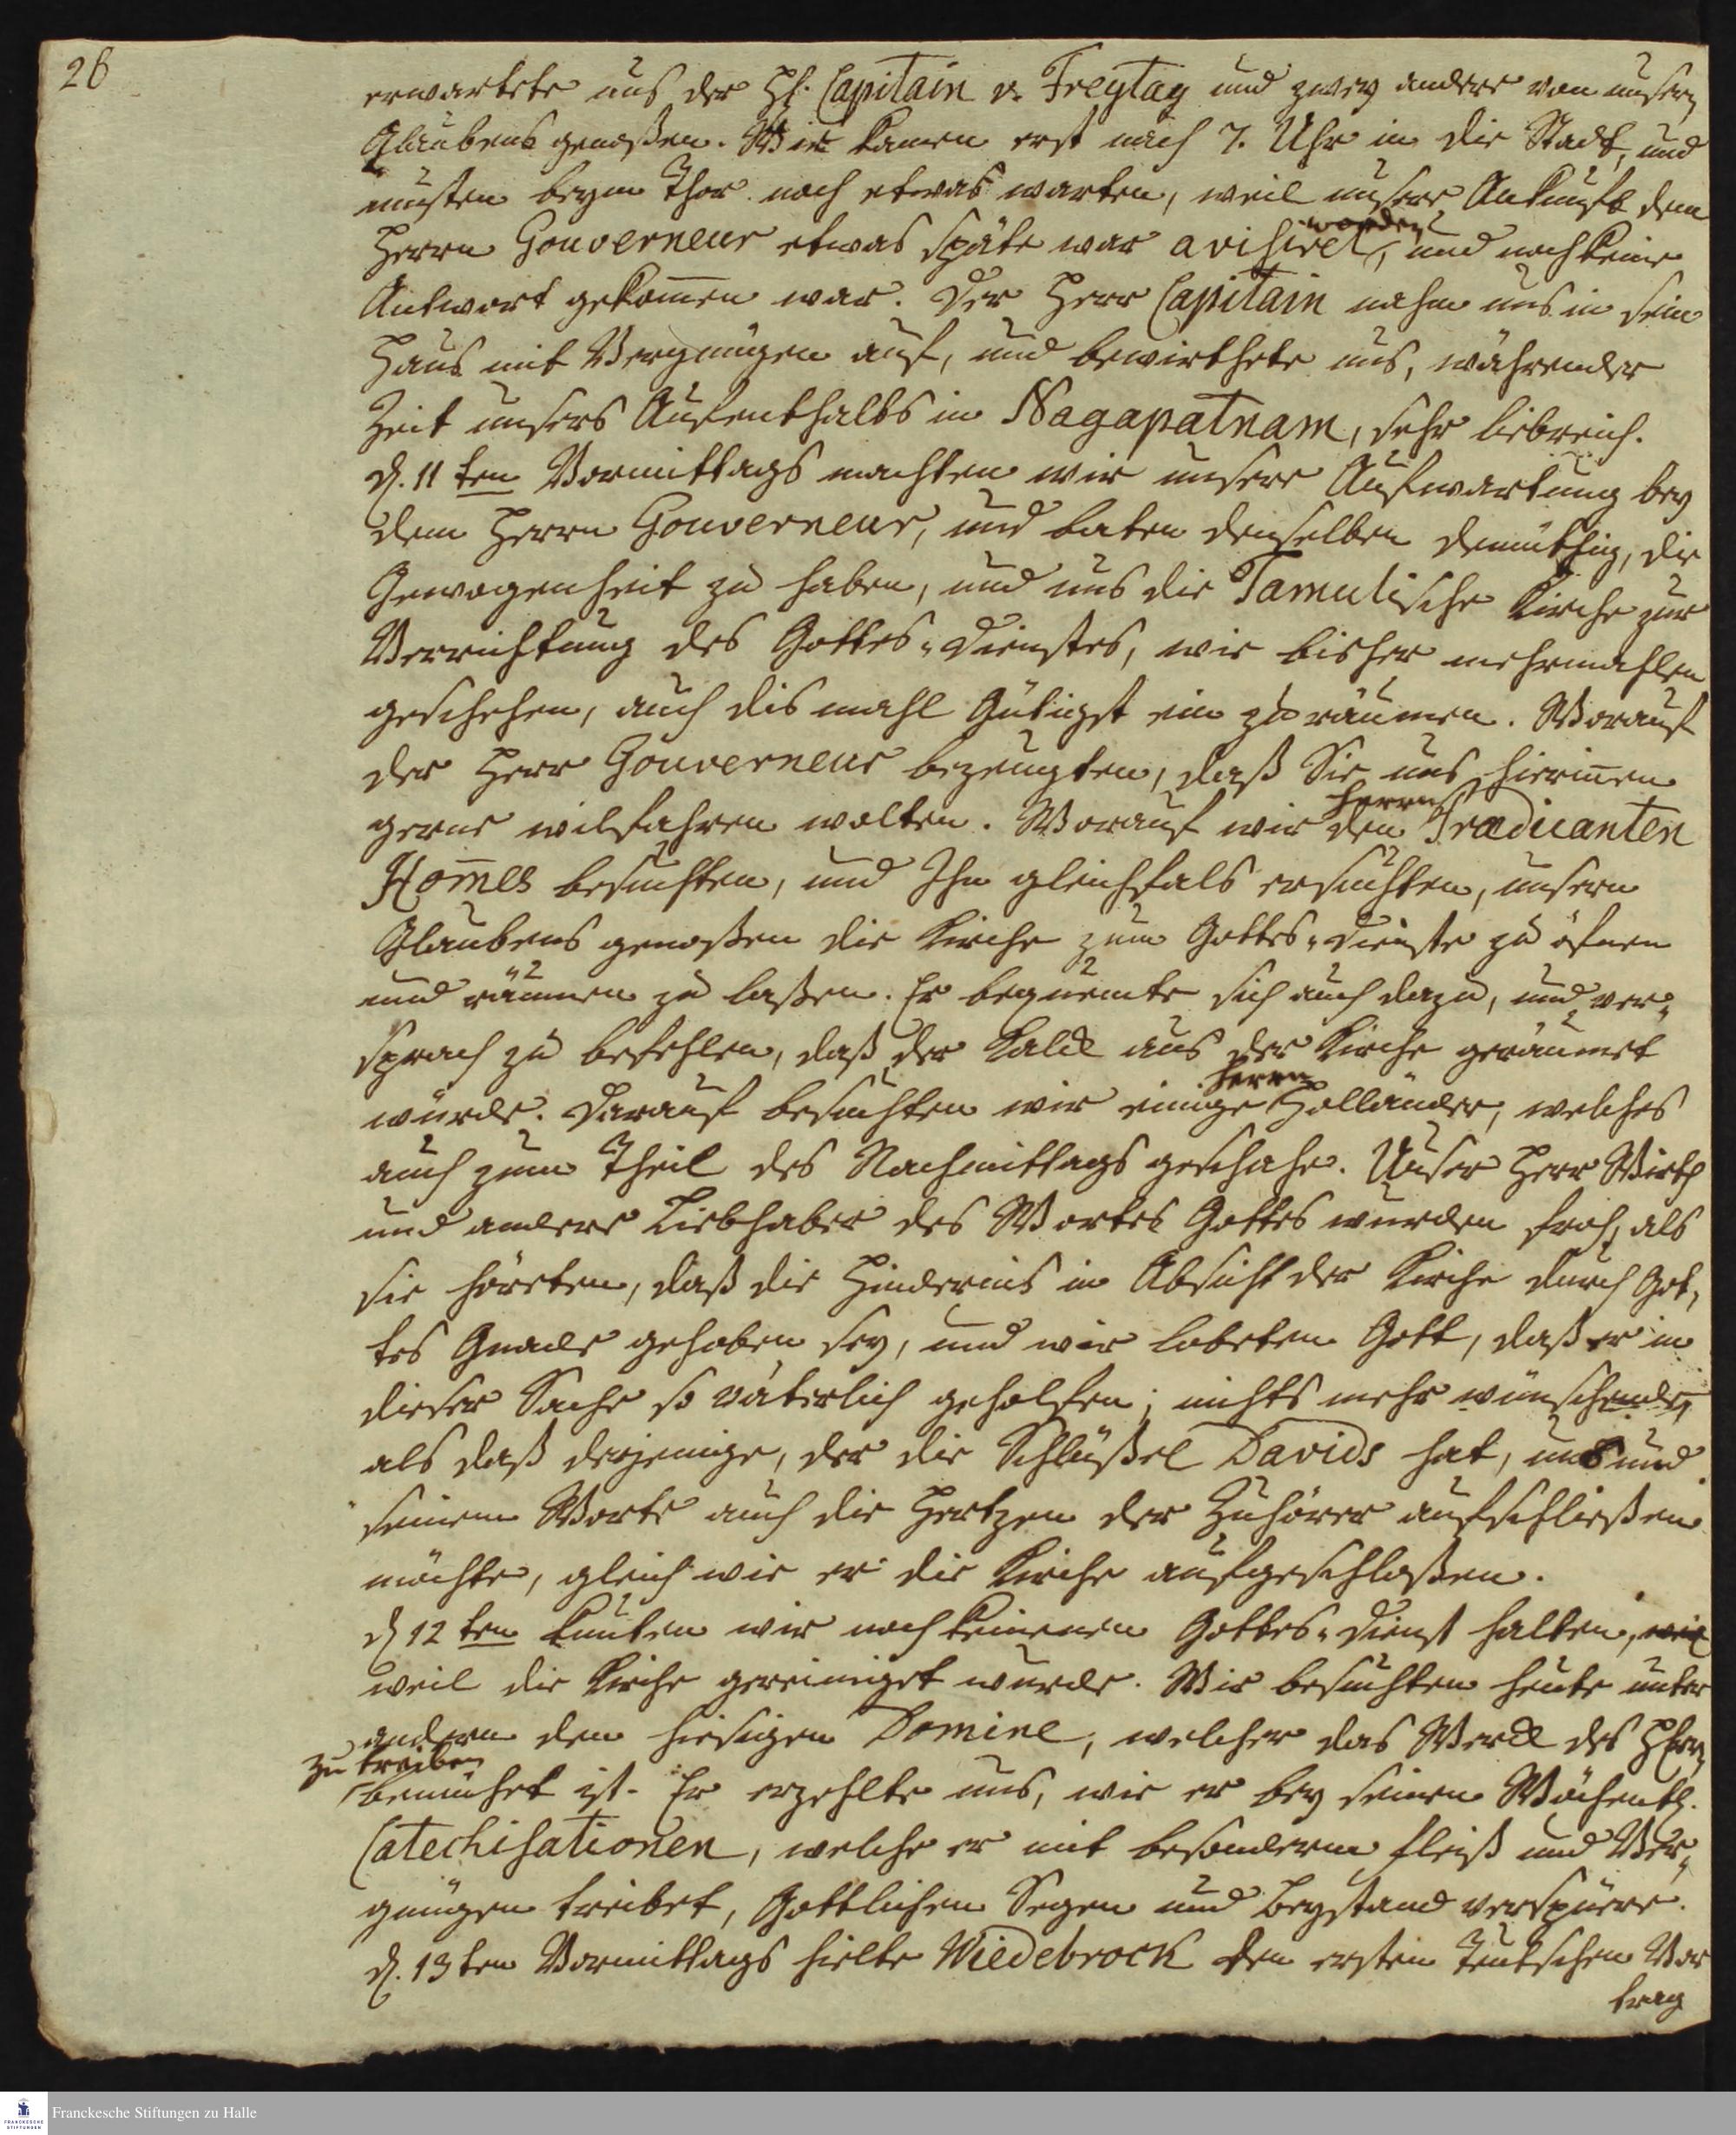 26
erwartete uns der Hl. Capitain v. Freytag und zwey andere von unsern
Glaubens genoßen. Wir kamen erst nach 7. Uhr in die Stadt, und
musten beym Thor noch etwas warten, weil unsere Ankunft dem
worden
Herrn Gouverneur etwas späte war avisiret, und noch keine
Antwort gekom̄en war. Der Herr Capitain nahm uns in sein
Haus mit Vergnügen auf, und bewirthete uns, währender
Zeit unsers Aufenthalts in Nagapatnam, sehr liebreich.
d. 11 ten Vormittags machten wir unsere Aufwartung bey
dem Herrn Gouverneur, und baten denselben demüthig, die
Gewogenheit zu haben, und uns die Tamulische Kirche zur
Verrichtung des Gottes-Dienstes, wie bisher mehrmahlen
geschehen, auch dis mahl Gütigst ein zu räumen. Worauf
der Herr Gouverneur bezeugten, daß Sie uns hierin̄en
Herrn
gerne wilfahren wolten. Worauf wir den Prædicanten
Hom̄es besuchten, und Ihn gleichfals ersuchten, unsern
Glaubens genoßen die Kirche zum Gottes-Dienste zu öfnen
und räumen zu laßen. Er bequemte sich auch dazu, und ver-
sprach zu befehlen, daß der Kalck aus der Kirche geräumet
Herrn
würde. Darauf besuchten wir einige Holländer, welches
auch zum Theil des Nachmittags geschahe. Unser Herr Wirth
und andere Liebhaber des Wortes Gottes wurden froh, als
sie höreten, daß die Hindernis in Absicht der Kirche durch Got-
tes Gnade gehoben sey, und wir lobeten Gott, daß er in
dieser Sache so väterlich geholfen; nichts mehr wünschende,
als daß derjenige, der die Schlüßel Davids hat, uns und
seinem Worte auch die Hertzen der Zuhörer aufschließen
möchte, gleich wie er die Kirche aufgeschloßen.
d 12 ten konten wir noch keinenen Gottes-Dienst halten, weil
weil die Kirche gereiniget wurde. Wir besuchten heute unter
andern den hiesigen Domine, welcher das Werck des HErrn
zu treiben
bemühet ist. Er erzehlte uns, wie er bey seinen Wöchentl.
Catechisationen, welche er mit besonderm Fleiß und Ver-
gnügen treibet, Göttlichen Segen und Beystand verspüre.
d. 13 ten Vormittags hielte Wiedebrock den ersten Teutschen Vor
trag
Franckesche Stiftungen zu Halle
FRANCKESCHE STIFTUNGEN